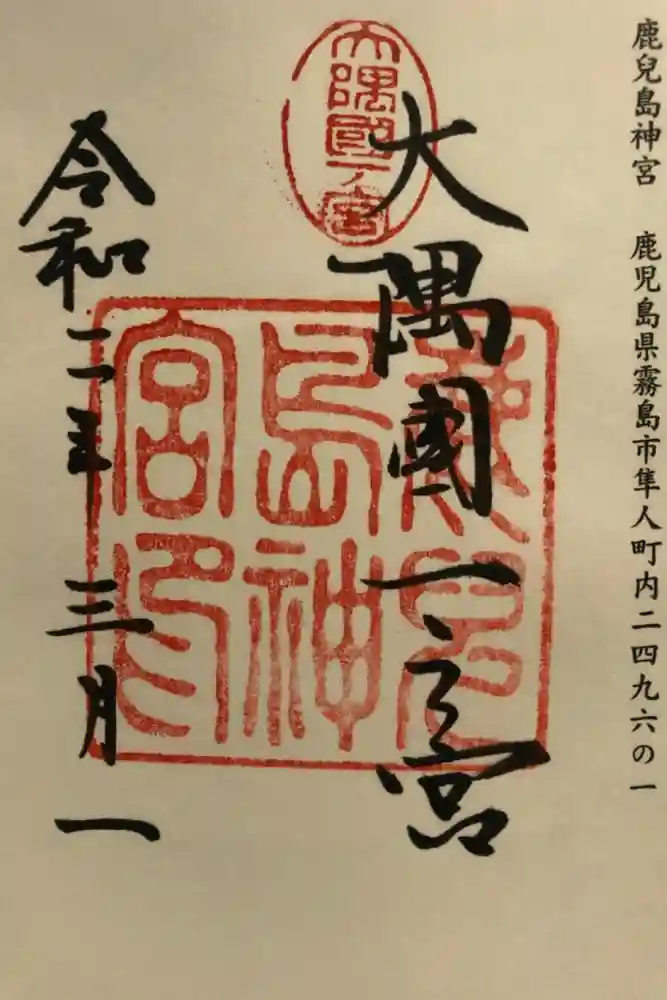 鹿兒島神宮 鹿児島県霧島市隼人町内二四九六の一
大隅國一ノ宮
大隅國一之宮
鹿兒島神宮印
令和二年 三月一